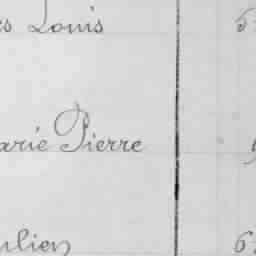 es Louis 5
arie Pierre
ulien 6